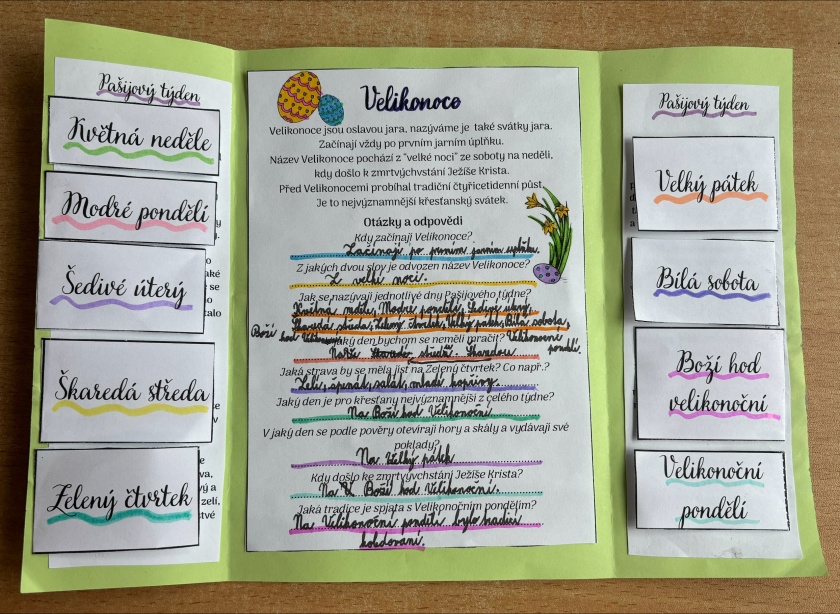 Pašijový týden
Květná neděle
Modré pondělí
Šedivé úterý
Škaredá středa
Zelený čtvrtek
Velikonoce
Velikonoce jsou oslavou jara, nazýváme je také svátky jara.
Začínají vždy po prvním jarním úplňku.
Název Velikonoce pochází z "velké noci" ze soboty na neděli,
kdy došlo k zmrtvýchvstání Ježíše Krista.
Před Velikonocemi probíhal tradiční čtyřicetidenní půst.
Je to nejvýznamnější křesťanský svátek.
Otázky a odpovědi
Kdy začínají Velikonoce?
Začínají po prvním jarním úplňku.
Z jakých dvou slov je odvozen název Velikonoce?
Z velké noci.
Jak se nazývají jednotlivé dny Pašijového týdne?
Květná neděle, Modré pondělí, Šedivé úterý,
Škaredá středa, Zelený čtvrtek, Velký pátek, Bílá sobota,
Boží hod Velikonoční
Velikonoční pondělí.
jaký den bychom se neměli mračit?
Škaredou.
Jaká strava by se měla jíst na Zelený čtvrtek? Co např.?
Zelí, špenát, salát, mladé kopřivy.
Jaký den je pro křesťany nejvýznamnější z celého týdne?
Na Boží hod Velikonoční
V jaký den se podle pověry otevírají hory a skály a vydávají své
poklady?
Na Velký pátek
Kdy došlo ke zmrtvýchvstání Ježíše Krista?
Na Boží hod Velikonoční.
Jaká tradice je spjata s Velikonočním pondělím?
Na Velikonoční pondělí bylo tradicí
koledování.
Pašijový týden
Velký pátek
Bílá sobota
Boží hod
velikonoční
Velikonoční
pondělí